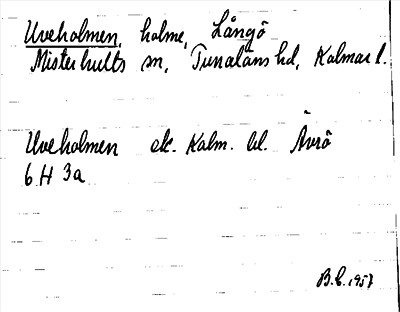 Uveholmen, holme, Långö
Misterhults sn, Tunaläns hd, Kalmar l.
Uveholmen ek. Kalm. bl. Ävrö
6 H 3a
B.E. 1957